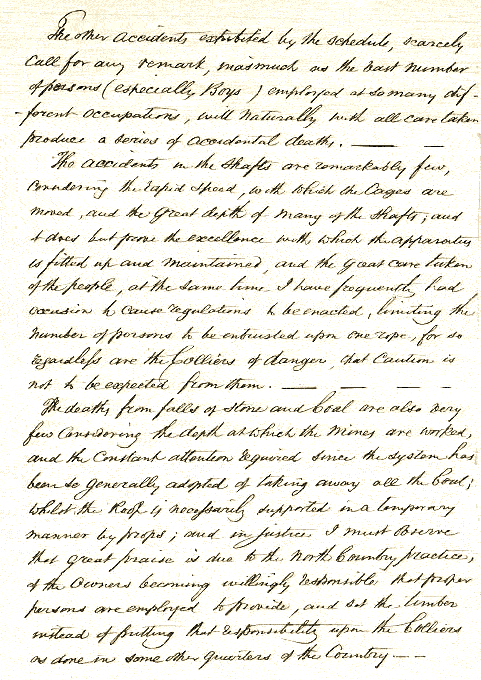 The other accidents exhibited by the schedule, scarcely
Call for any remark, inasmuch as the vast number
of persons (especially Boys) employed at so many dif-
-ferent occupations, will naturally with all care taken
produce a series of accidental deaths. — — —
The accidents in the shafts are remarkably few,
considering the rapid speed, with which the Cages are
moved, and the great depth of many of the shafts; and
it does but prove the excellence with which the apparatus
is fitted up and maintained, and the great care taken
of the people, at the same time I have frequently had
occasion to cause regulations to be enacted, limiting the
number of persons to be entrusted upon one rope, for so
regardless are the Colliers of danger, that Caution is
not to be expected from them. — — — —
The deaths from falls of Stone and Coal are also very
few Considering the depth at which the Mines are worked,
and the Constant attention required since the system has
been so generally adopted of taking away all the Coal;
whilst the Roof is necessarily supported in a temporary
manner by props; and in justice I must observe
that great praise is due to the North Country practice,
of the Owners becoming willingly responsible that proper
persons are employed to provide, and set the timber
instead of putting that responsibility upon the Colliers
as done in some other quarters of the Country — —